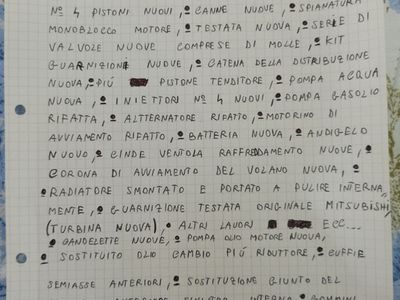 Nº 4 PISTONI NUOVI, º CANNE NUOVE, º SPIANATURA
MONOBLOCCO MOTORE, º TESTATA NUOVA, º SERIE DI
VALVOLE NUOVE COMPRESE DI MOLLE, º KIT
GUARNIZIONI NUOVE, º CATENA DELLA DISTRIBUZIONE
NUOVA, º PIÚ PISTONE TENDITORE, º POMPA ACQUA
NUOVA, º INIETTORI Nº 4 NUOVI, º POMPA GASOLIO
RIFATTA, º ALTTERNATORE RIFATTO, º MOTORINO DI
AVVIAMENTO RIFATTO, º BATTERIA NUOVA, º ANDIGELO
NUOVO, º CINDE VENTOLA RAFFREDDAMENTO NUOVE, º
CORONA DI AVVIAMENTO DEL VOLANO NUOVA, º
º RADIATORE SMONTATO E PORTATO A PULIRE INTERNA
MENTE, º GUARNIZIONE TESTATA ORIGINALE MITSUBISHI
(TURBINA NUOVA) º ALTRI LAVORI ECC...
º CANDELETTE NUOVE, º POMPA OLIO MOTORE NUOVA,
º SOSTITUITO OLIO CAMBIO PIÚ RIDUTTORE, º CUFFIE
SEMIASSE ANTERIORI, º SOSTITUZIONE GIUNTO DEL
INTERNO º GOMMINI